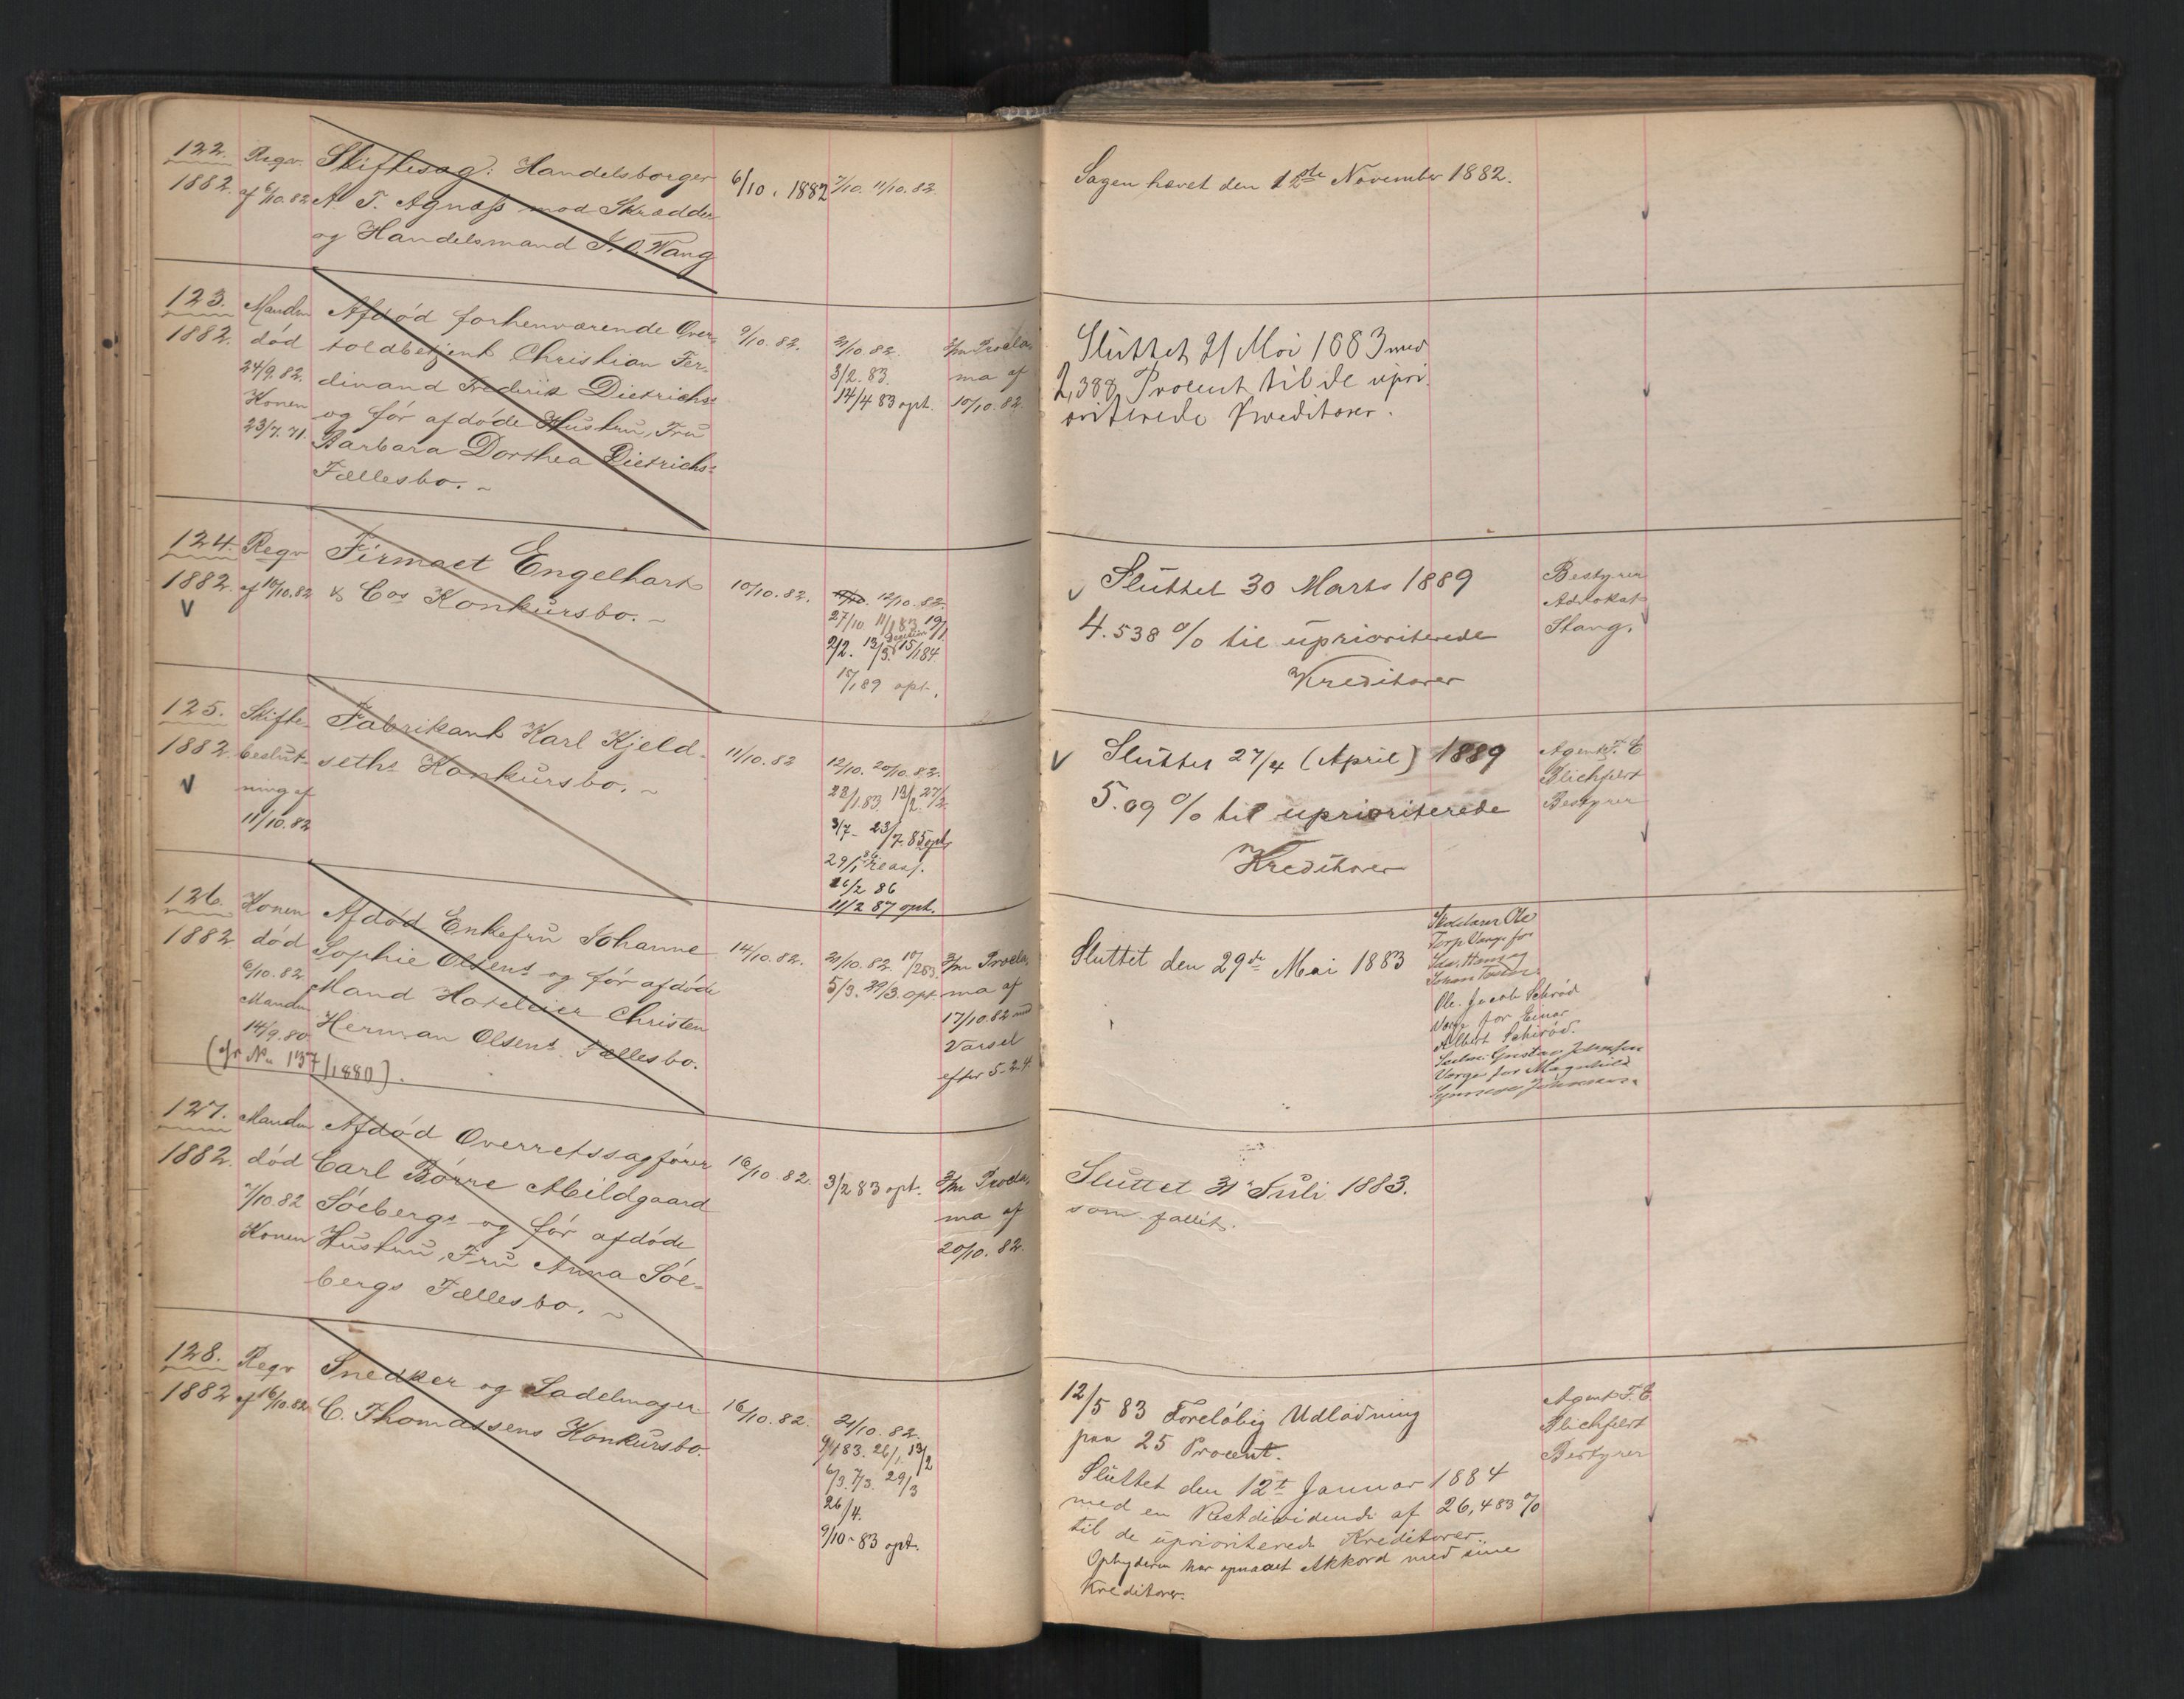 122.
1882.
Reqv.
af 6/10.82
Skiftesag: Handelsborger
A. T. Agnæss mod Skrædder
og Handelsmand J. O. Wang
6/10. 1882
7/10. 11/10. 82.
Sagen hævet den 12te November 1882.
123.
1882.
Manden
død
24/9. 82.
Konen
23/7. 71.
Afdød forhenværende Over-
toldbetjent Christian Fer-
dinand Frederik Dietrichs-
og før afdøde Hustru, Fru
Barbara Dorthea Dietrichs-
Fællesbo. ~
9/10. 82.
21/10. 82.
3/2. 83.
14/4 83 opt.
3/m Procla-
ma af
10/10. 82.
Sluttet 21 Mai 1883 med
2,388 Procent til de upri-
oriterede Kreditorer.
124.
1882.
V
Reqv
af 10/10.82
Firmaet Engelhart
& Cos Konkursbo. ~
10/10. 82.
12/10. 82.
27/10. 11/1 83 19/1
2/2. 13/3. 15/1 84
15/1 89 opt.
V Sluttet 30 Marts 1889
4.538 % til uprioriterede
Kreditorer
Bestyrer
Advokat
Stang.
125.
1882.
V
Skifte-
beslut-
ning af
11/10.82
Fabrikant Karl Kjeld-
seths Konkursbo. ~
11/10. 82
12/10. 20/10. 82.
23/1.83. 13/2. 27/2.
3/7- 23/7. 85 opt.
29/1 86 reas.
26/2 86
11/2 87 opt.
V Sluttet 27/4 (April) 1889
5.09 % til uprioriterede
Kreditorer
Agent F. E
Blichfeldt
Bestyrer
126.
1882
Konen
død
6/10. 82
Manden
14/9. 80.
(cfr No 137/1880).
Afdød Enkefru Johanne
Sophie Olsens og før afdøde
Mand Hotelier Christen
Herman Olsens Fællesbo.
14/10. 82.
21/10. 82. 10/2 83.
5/3. 29/3. opt
3/m Procla-
ma af
17/10.82 med
Varsel
efter 5-2-4
Sluttet den 29de Mai 1883
Ole
Torp Værge for
Ole Jacob Schrød
Værge for Einar
Albert Schirød.
Gustav Johnsen
Værge for Magnhild
127.
1882.
Manden
død
7/10. 82
Konen
Afdød Overretssagfører
Carl Børre Abildgaard
Søebergs og før afdøde
Hustru, Fru Anna Søe-
bergs Fællesbo. ~
16/10. 82.
3/2 83 opt.
3/m Procla-
ma af
20/10. 82.
Sluttet 31 Juli 1883.
som fallit.
128.
1882
Reqv
af 16/10.82
Snedker og Sadelmager
C. Thomassens Konkursbo.
16/10. 82.
21/10. 82.
9/1 83. 26/1. 13/2
6/3. 7/3. 29/3
26/4.
9/10 - 83 opt.
12/5 83 Foreløbig Udlodning
paa 25 Procent.
Sluttet den 12t Januar 1884
med en Restdividende af 26,483 %
til de uprioriterede Kreditorer.
Opbyderen har opnaaet Akkord med sine
Kreditorer.
Agent F. E.
Blichfeldt
Bestyrer